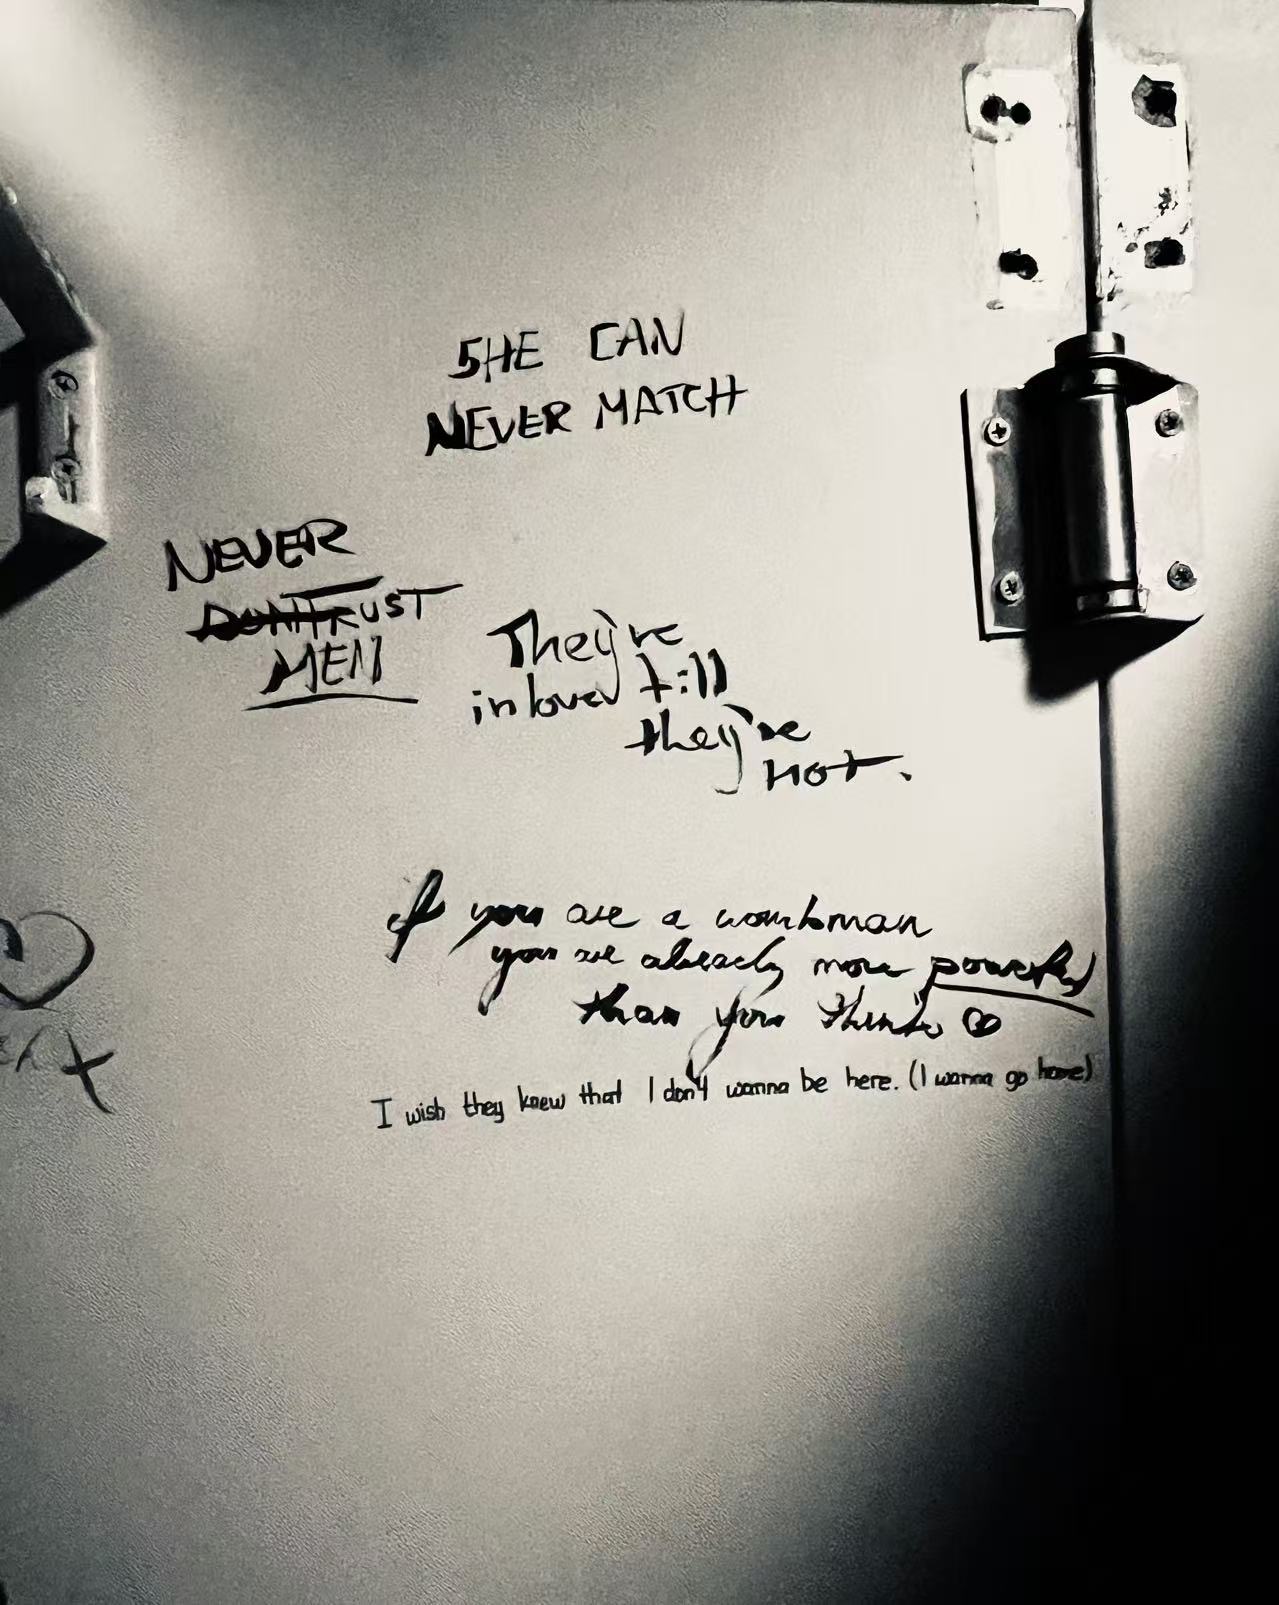 SHE CAN
NEVER MATCH
NEVER
DON'T TRUST
MEN
They're
in love till
they're
not.
if you are a wombman
you are already more powerful
than you think
I wish they knew that I don't wanna be here. (I wanna go home)